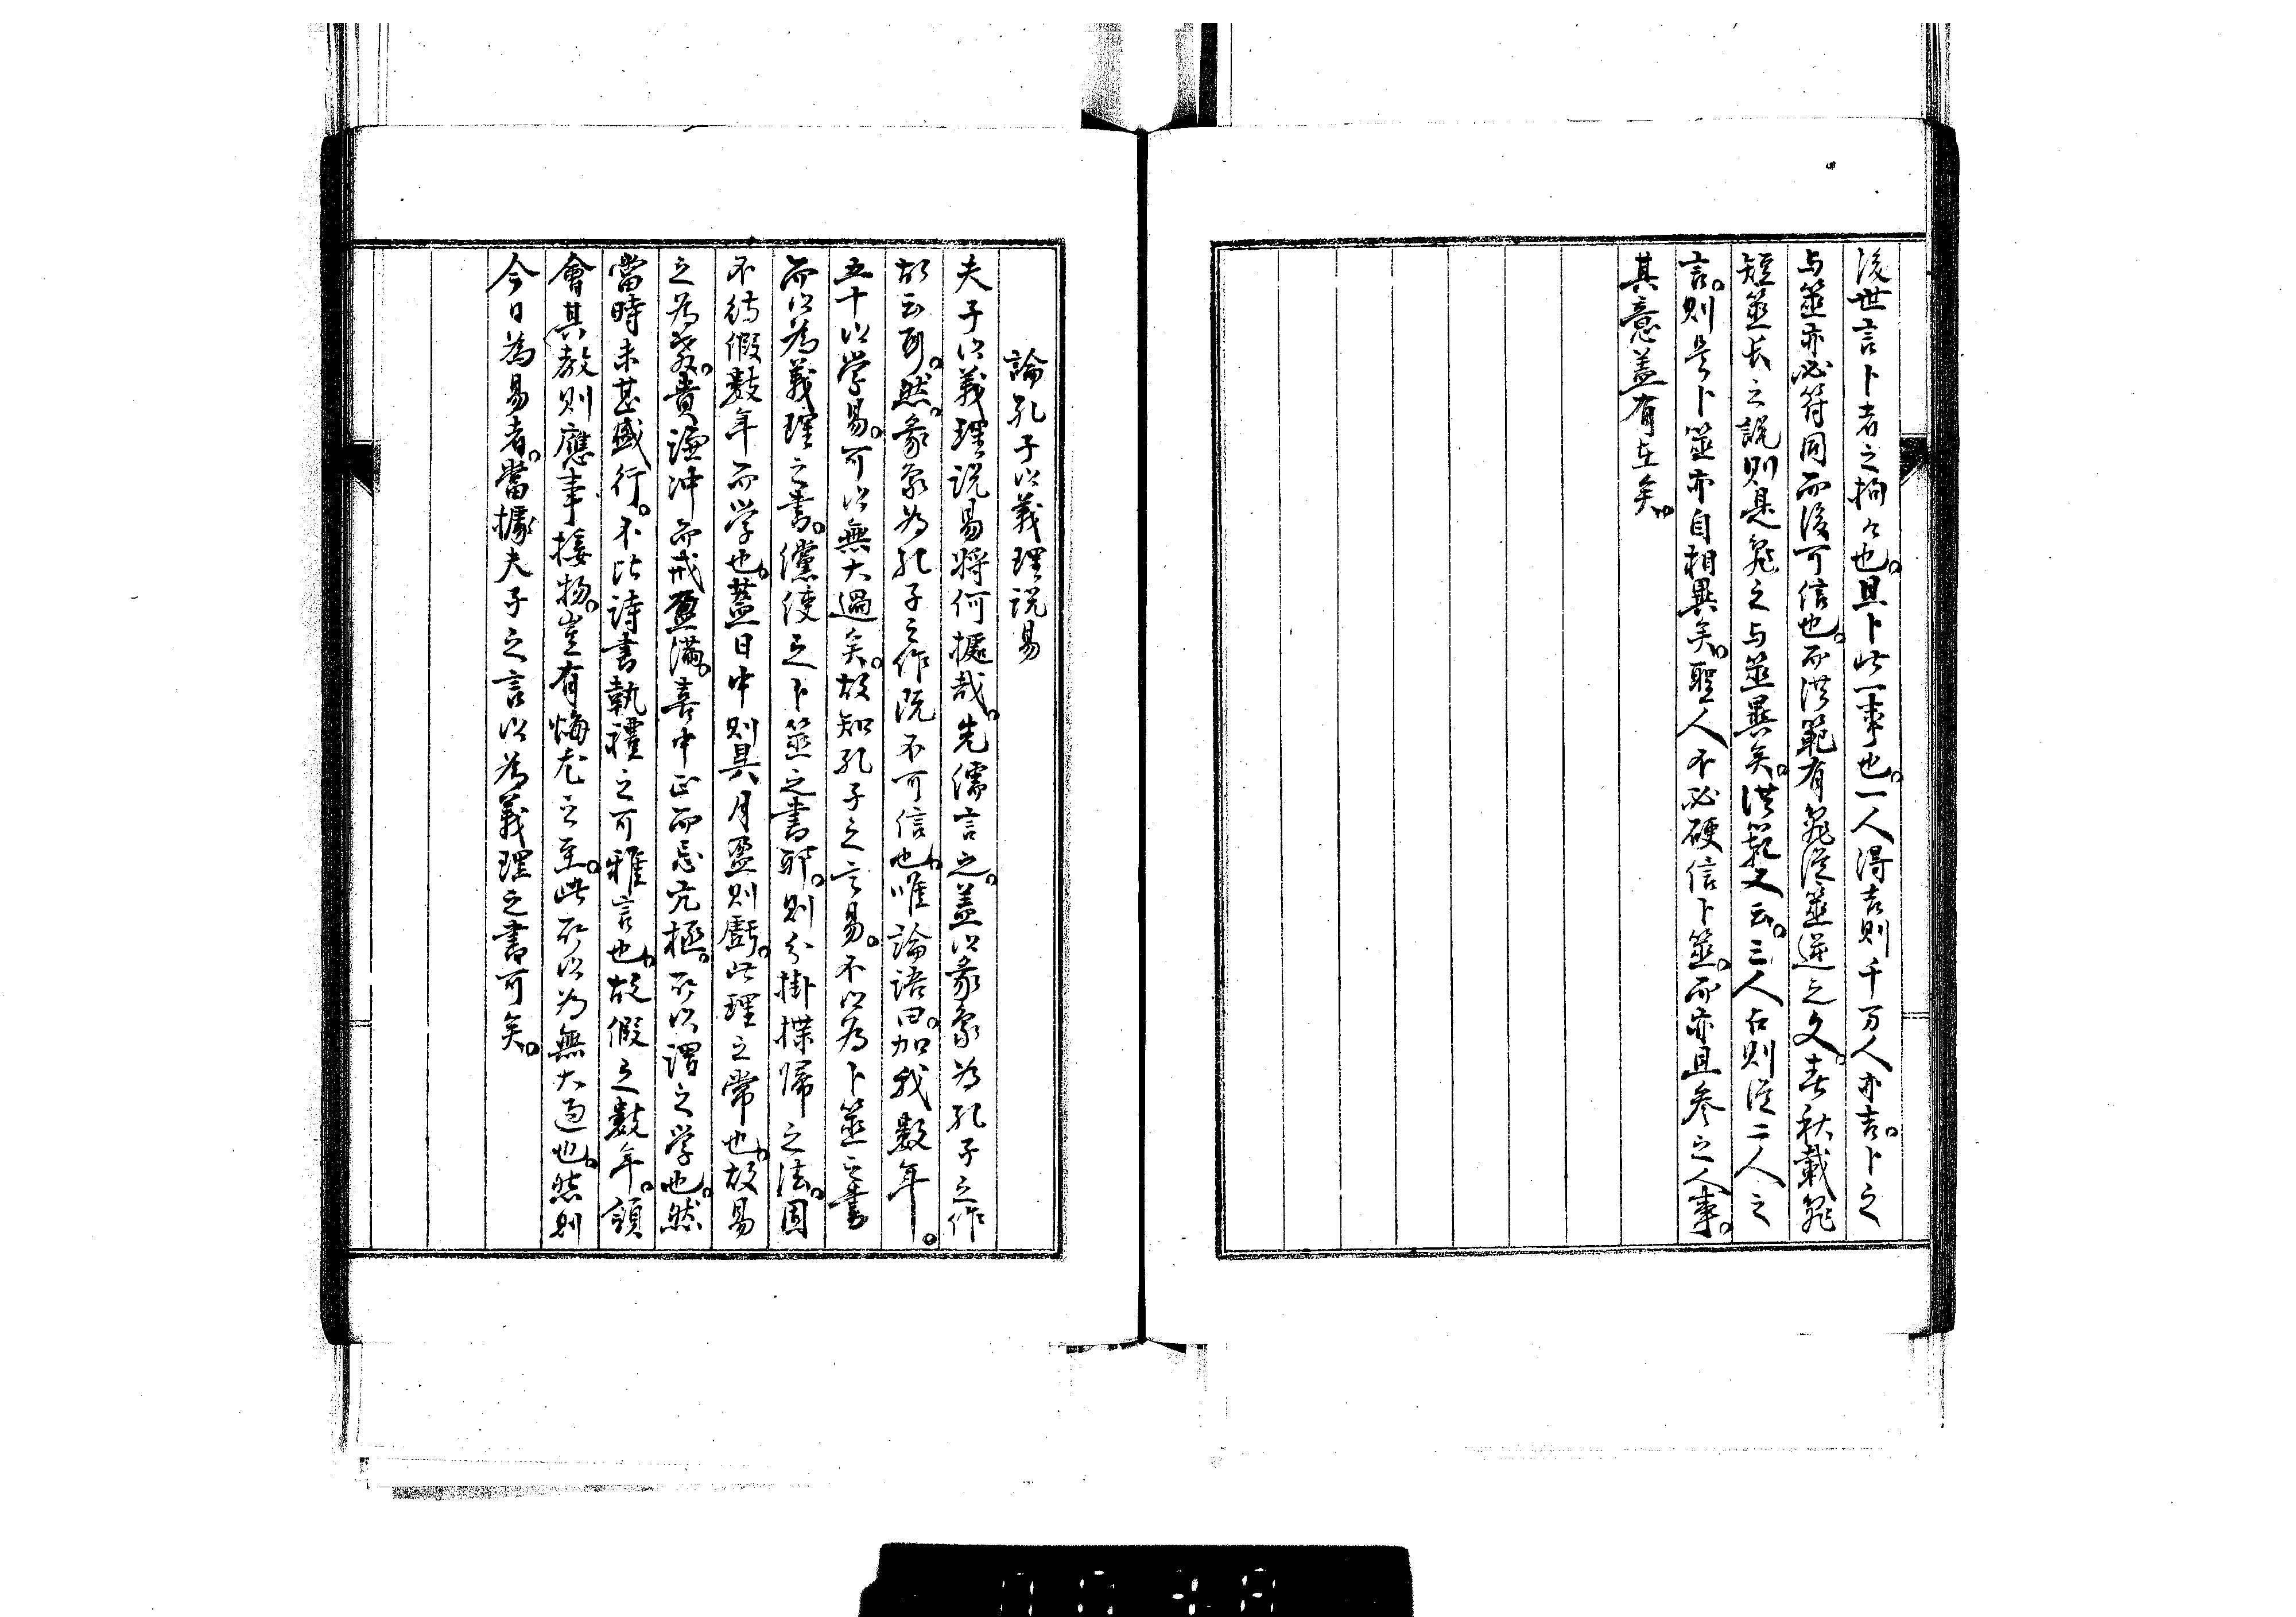 後世言卜者之拘々也。且卜此一事也。一人得吉則千万人亦吉。卜之
与筮亦必符同而後可信也。而洪範有龜從筮逆之文。春秋載龜
短筮長之説則是龜之与筮異矣。洪範又云。三人占則從二人之
言。則是卜筮亦自相異矣。聖人不必硬信卜筮。而亦且参之人事。
其意盖有在矣。
論孔子以義理説易
夫子以義理説易将何據哉。先儒言之。盖以彖象為孔子之作
故云爾。然彖象為孔子之作既不可信也。唯論語曰。加我數年。
五十以学易。可以無大過矣。故知孔子之言易。不以為卜筮之書
而以為義理之書。儻使之卜筮之書耶。則分掛揲帰之法。固
不待假數年而学也。蓋日中則昃月盈則虧。此理之常也。故易
之為教。貴謙冲而戒盈満。喜中正而忌亢極。所以謂之学也。然
當時未甚盛行。不比詩書執禮之可雅言也。故假之數年。領
會其教則應事接物。豈有悔尤之至。此所以為無大過也。然則
今日為易者。當據夫子之言以為義理之書可矣。